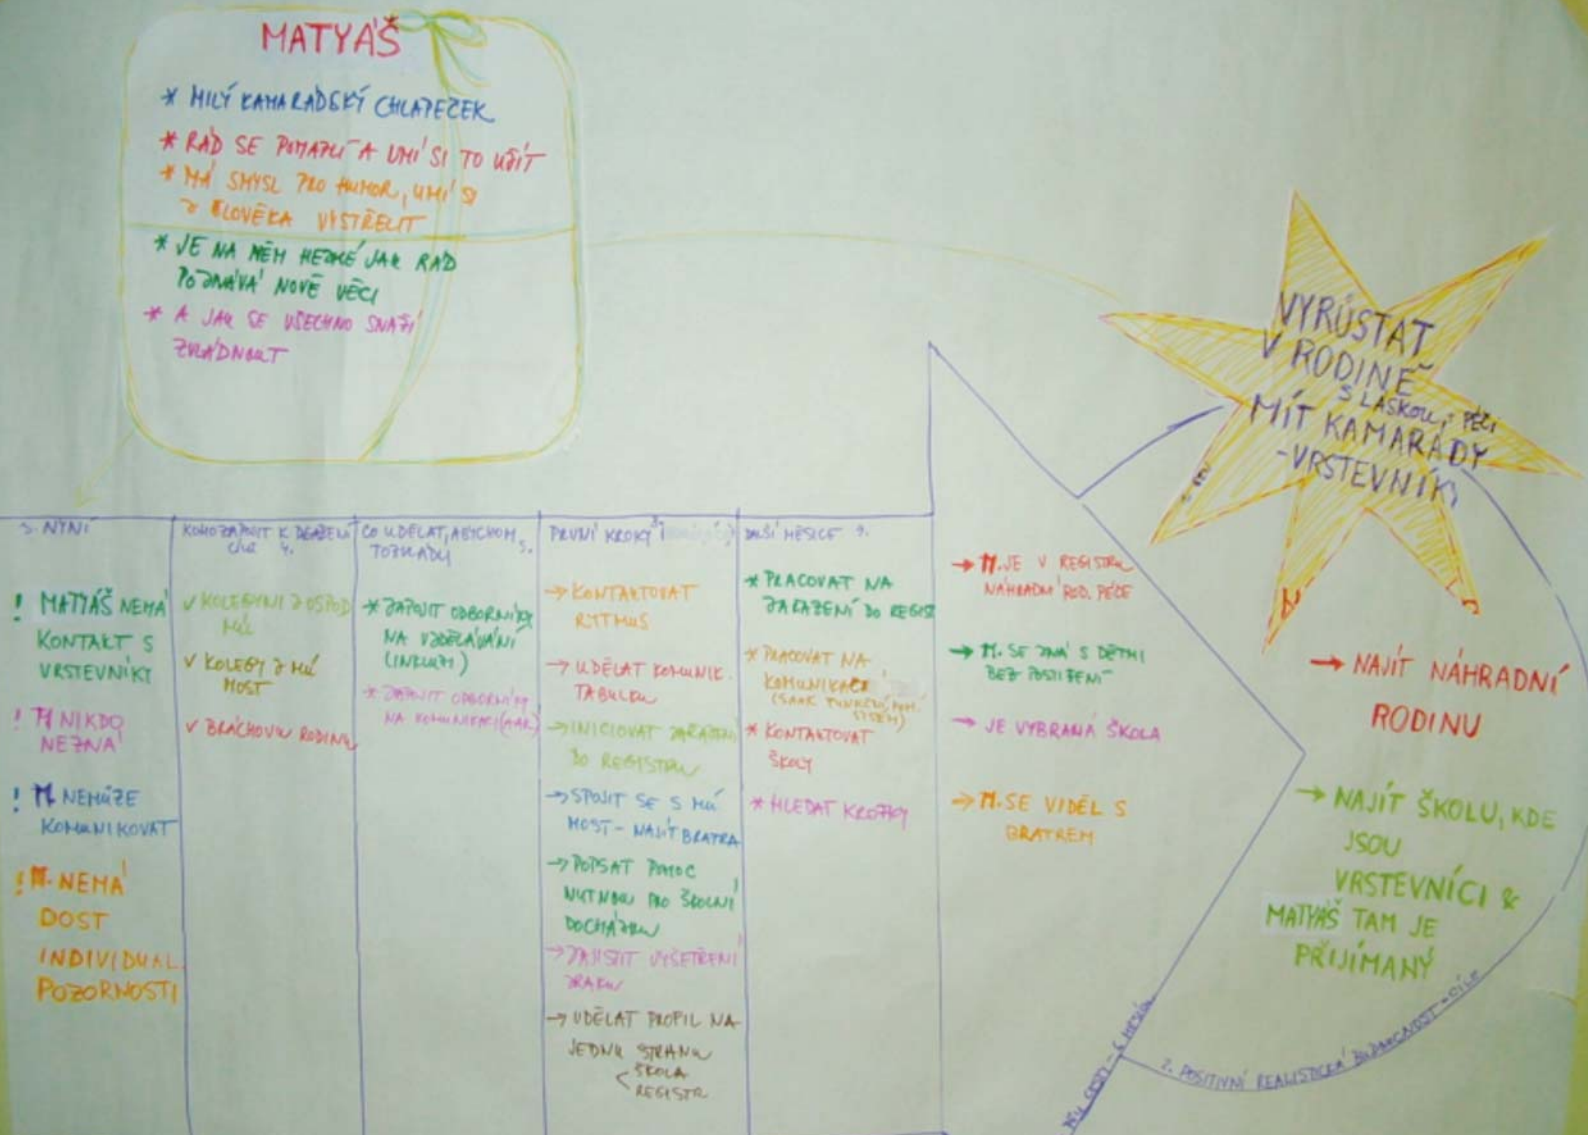 MATYÁŠ
* MILÝ KAMARÁDSKÝ CHLAPEČEK
* RÁD SE POMAZLÍ A UMÍ SI TO UŽÍT
* MÁ SMYSL PRO HUMOR, UMÍ SI
Z ČLOVĚKA VYSTŘELIT
* JE NA NĚM HEZKÉ JAK RÁD
POZNÁVÁ NOVÉ VĚCI
* A JAK SE VŠECHNO SNAŽÍ
ZVLÁDNOUT
VYRŮSTAT
V RODINĚ
S LÁSKOU, PÉČÍ
MÍT KAMARÁDY
-VRSTEVNÍKY
3. NYNÍ
! MATYÁŠ NEMÁ
KONTAKT S
VRSTEVNÍKY
! M NIKDO
NEZNÁ
! M NEMŮŽE
KOMUNIKOVAT
! M. NEMÁ
DOST
INDIVIDUAL.
POZORNOSTI
KOHO ZAPOJIT K DOSAŽENÍ
CÍLE 4.
✓ KOLEGYNI Z OSPOD
MÚ
✓ KOLEGY Z MÚ
MOST
✓ BRÁCHOVU RODINU
CO UDĚLAT, ABYCHOM 5.
* ZAPOJIT ODBORNÍKY
NA VZDĚLÁVÁNÍ
(INKLUZI)
* ZAPOJIT ODBORNÍKY
NA KOMUNIKACI (AAK)
PRVNÍ KROKY
→ KONTAKTOVAT
RYTMUS
→ UDĚLAT KOMUNIK.
TABULKU
→ INICIOVAT ZAŘAZENÍ
DO REGISTRU
→ SPOJIT SE S MÚ
MOST - NAJÍT BRATRA
→ POPSAT POMOC
NUTNOU PRO ŠKOLNÍ
DOCHÁZKU
→ ZAJISTIT VYŠETŘENÍ
ZRAKU
→ UDĚLAT PROFIL NA
JEDNU STRANU
ŠKOLA
REGISTR
DALŠÍ MĚSÍCE 7.
* PRACOVAT NA
ZAŘAZENÍ DO REGIST
* PRACOVAT NA
KOMUNIKACI
* KONTAKTOVAT
ŠKOLY
* HLEDAT KROUŽKY
→ M. JE V REGISTRU
NÁHRADNÍ ROD. PÉČE
→ M. SE ZNÁ S DĚTMI
BEZ POSTIŽENÍ
→ JE VYBRANÁ ŠKOLA
→ M. SE VIDĚL S
BRATREM
→ NAJÍT NÁHRADNÍ
RODINU
→ NAJÍT ŠKOLU, KDE
JSOU
VRSTEVNÍCI &
MATYÁŠ TAM JE
PŘIJÍMANÝ
2. POSITIVNÍ REALISTICKÁ BUDOUCNOST - CÍLE
CESTY - 6 MĚSÍCŮ